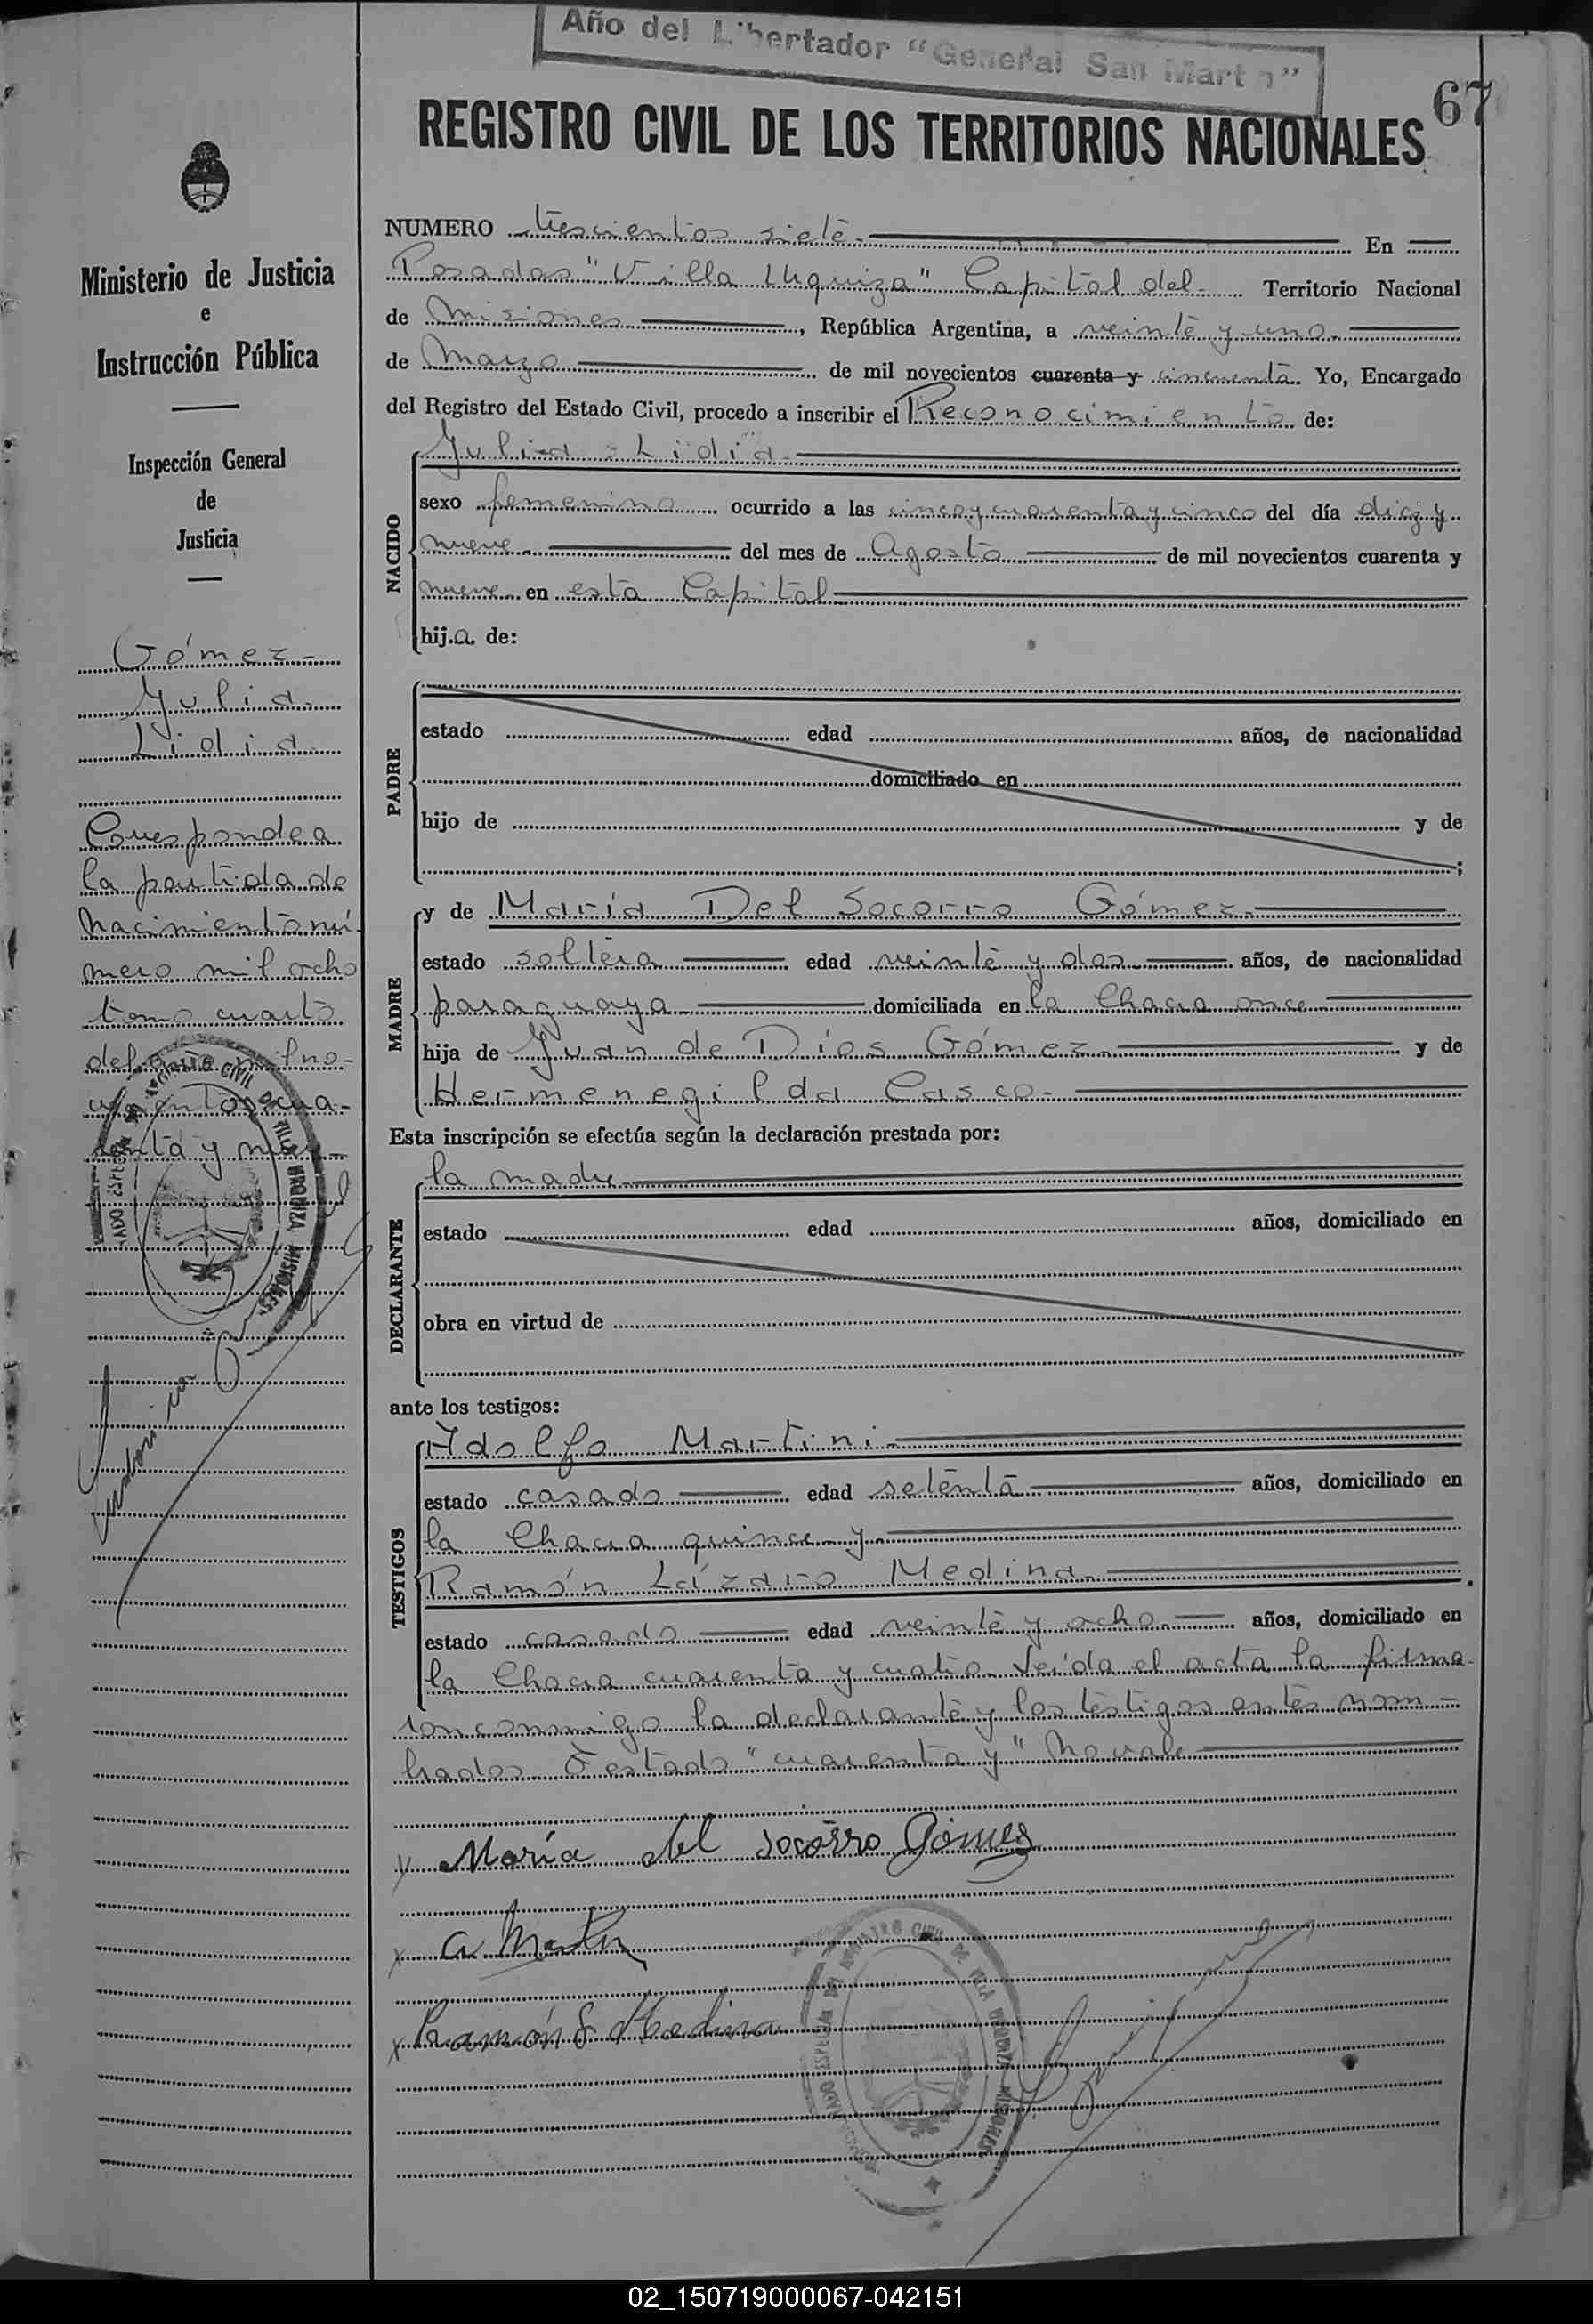 Año del Libertador "General San Martín"
67
REGISTRO CIVIL DE LOS TERRITORIOS NACIONALES
Ministerio de Justicia
e
Instrucción Pública
Inspección General
de
Justicia
Gómez-
Julia
Lidia
Corresponde a
la partida de
Nacimiento nú-
mero mil ocho
tomo cuarto
del año mil no-
vecientos cua-
renta y nueve
NUMERO trescientos siete. En
Posadas "Villa Urquiza" Capital del Territorio Nacional
de Misiones, República Argentina, a veinte y uno
de Marzo de mil novecientos cuarenta y cincuenta. Yo, Encargado
del Registro del Estado Civil, procedo a inscribir el Reconocimiento de:
NACIDO
Julia Lidia
sexo femenino ocurrido a las cinco y cuarenta y cinco del día diez y
nueve del mes de Agosto de mil novecientos cuarenta y
nueve en esta Capital
hija de:
PADRE
estado edad años, de nacionalidad
domiciliado en
hijo de y de
;
MADRE
y de María Del Socorro Gómez
estado soltera edad veinte y dos años, de nacionalidad
paraguaya domiciliada en la Chacra once
hija de Juan de Dios Gómez y de
Hermenegilda Casco
Esta inscripción se efectúa según la declaración prestada por:
DECLARANTE
la madre
estado edad años, domiciliado en
obra en virtud de
ante los testigos:
TESTIGOS
Adolfo Martini
estado casado edad setenta años, domiciliado en
la Chacra quince y
Ramón Lázaro Medina
estado casado edad veinte y ocho años, domiciliado en
la Chacra cuarenta y cuatro. Leída el acta la firma-
ron conmigo la declarante y los testigos antes nom-
brados. Testado "cuarenta y" No vale
x María del Socorro Gómez
x A Martini
x Ramón L Medina
REGISTRO CIVIL DE VILLA URQUIZA MISIONES
02_150719000067-042151